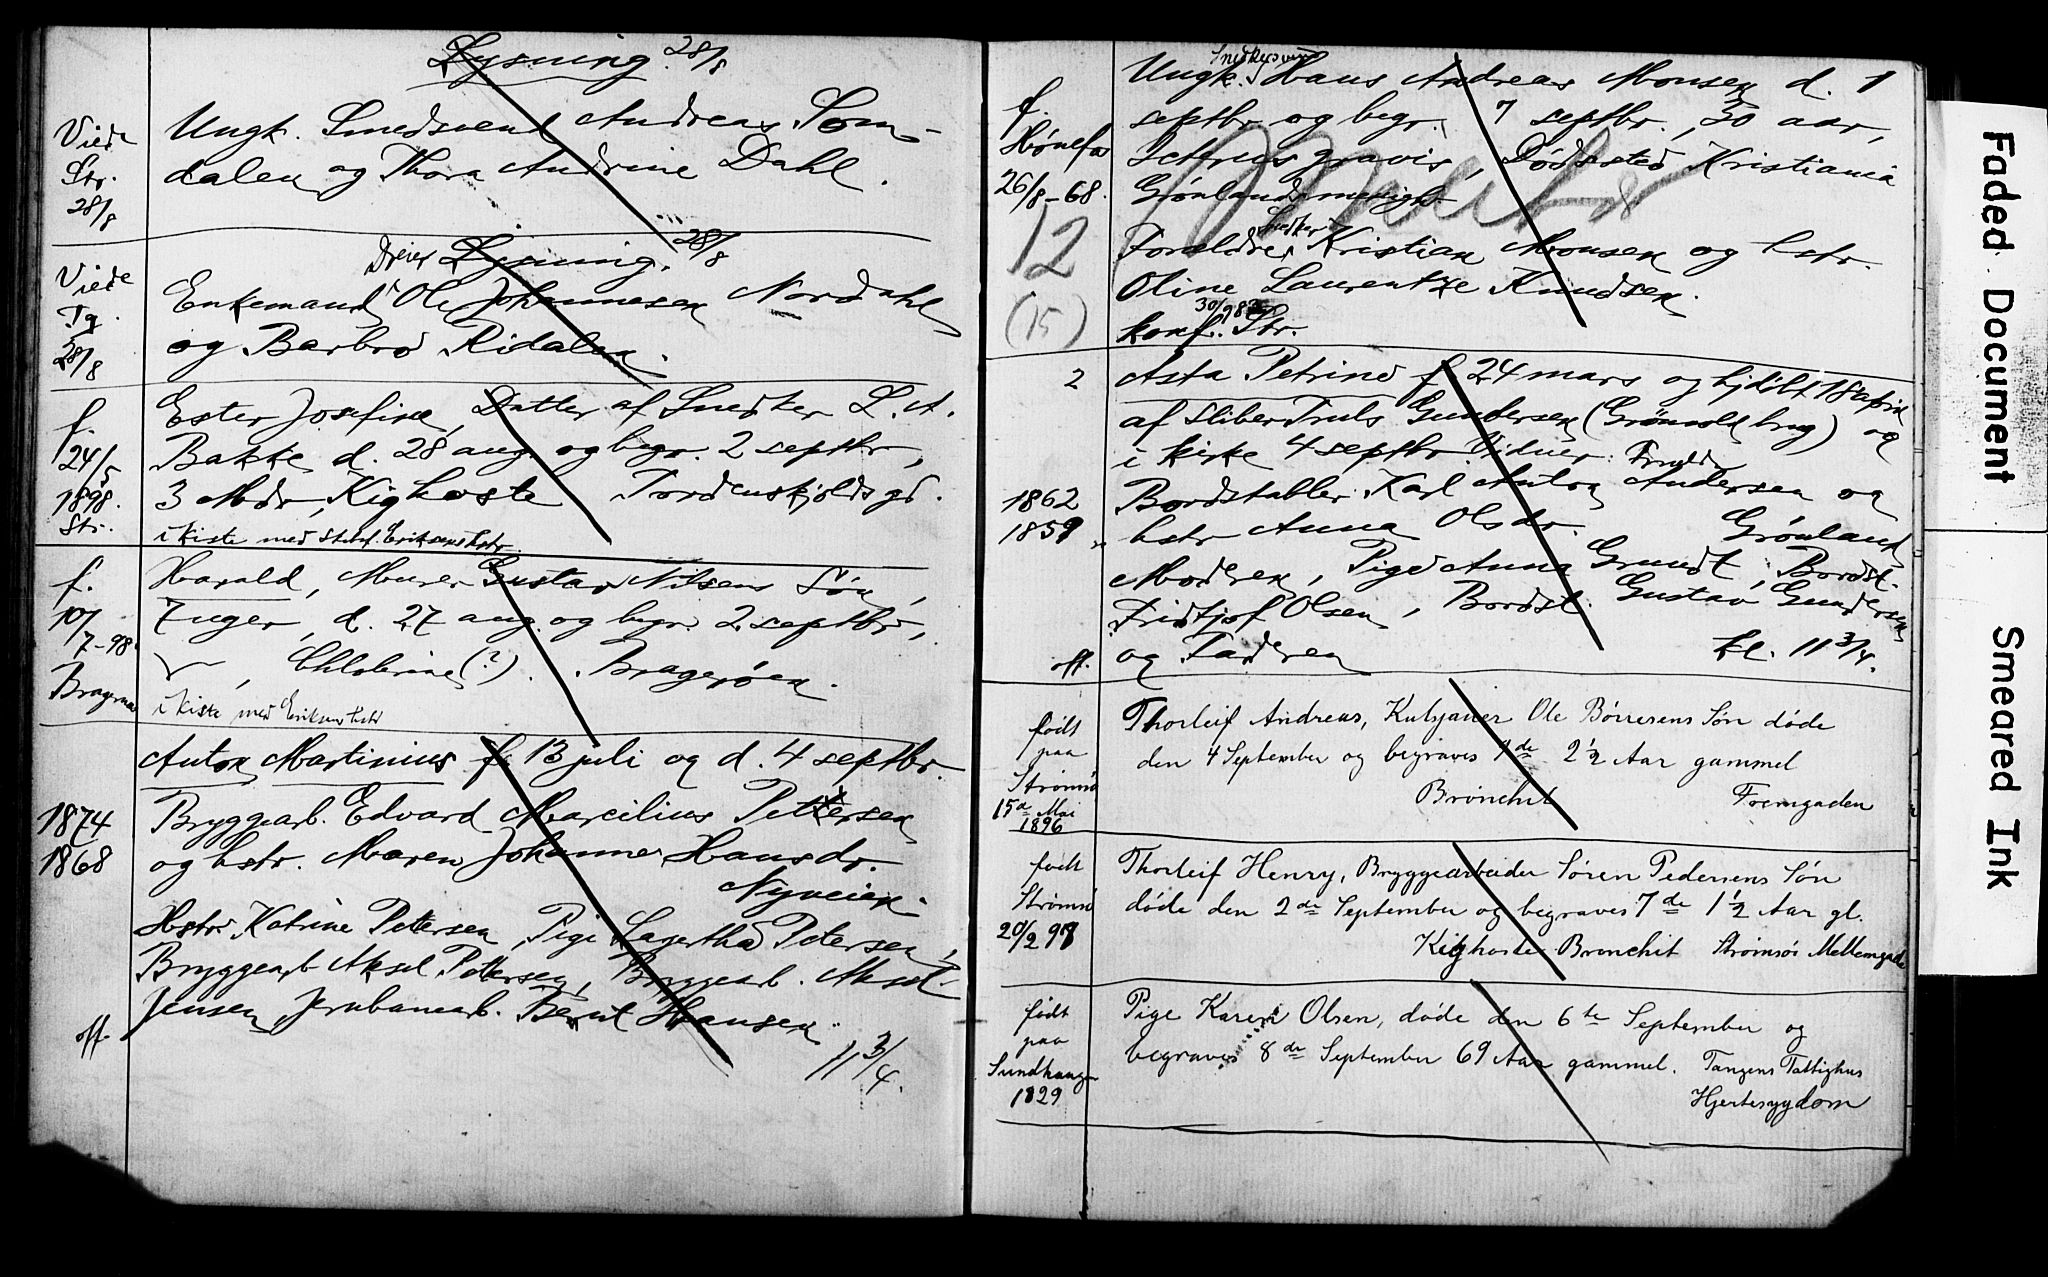 Lysning 28/8
Viede
Str.
28/8
Ungk. Smedsvend Andreas Søm-
dalen og Thora Andrine Dahl.
Lysning. 28/8
Viede
Tg.
28/8
Dreier
Enkemand Ole Johannesen Nordahl
og Barbro Ridalen.
f.
24/5
1898.
Str.
Ester Josefine, Datter af Snedker L. A.
Bakke, d. 28 aug. og begr. 2 septbr,
3 Mdr, Kighoste Tordenskjolds gd.
i kiste med Eriksens hstr.
f.
10/
7-98.
Bragernes
Harald, Murer Gustav Nilsens Søn,
7 uger, d. 27 aug. og begr. 2 septbr,
(?). Bragerøen.
i kiste med Eriksens hstr
Anton Martinius f. 13 juli og d. 4 septbr.
1874
1868
Bryggearb. Edvard Marcilius Pettersen
og hstr. Maren Johanne Hansdr.
Nyveien.
Hstr Katrine Pettersen, Pige Lagertha Petersen,
Bryggearb Aksel Pettersen, Bryggearb. Aksel
Jensen, Jernbanearb. Bernt Hansen.
off.
11 3/4.
Snedkersvend
f.
Hønefos
26/8-68.
Ungk. Hans Andreas Monsen d. 1
septbr og begr. 7 septbr., 30 aar,
Icterus gravis, Dødssted Kristiania
Grønlands menighed
12
(15)
Snedker
Forældre, Kristian Monsen og hstr.
Oline Laurentze Knudsen.
konf. 30/9 83 Str.
2
Asta Petrine f 24 mars og hjdøbt 18 april
af Sliber Truls Gundersen (Grønvold brug) og
i kirke 4 septbr. Vidner: Fradr
1862
1859
Bordstabler Karl Anton Andersen og
hstr Anna Olsdr. Grønland
Moderen, Pige Anna Grundt, Bordst.
Fridtjof Olsen, Bordst. Gustav Gundersen
og Faderen kl. 11 3/4.
off.
født
paa
Strømsø
15de Mai
1896
Thorleif Andreas, Kulsjauer Ole Børresens Søn døde
den 4 September og begraves 7de 2 1/2 Aar gammel
Bronchit Tremgaden
født
Strømsø
20/2 97
Thorleif Henry, Bryggearbeider Søren Pedersens Søn
døde den 2de September og begraves 7de 1 1/2 Aar gl.
Kighoste Bronchit Strømsø Mellemgade
født
paa
Sundhaugen
1829
Pige Karen Olsen, døde den 6te September og
begraves 8de September 69 Aar gammel. Tangens Fattighus
Hjertesygdom
Faded Document
Smeared Ink